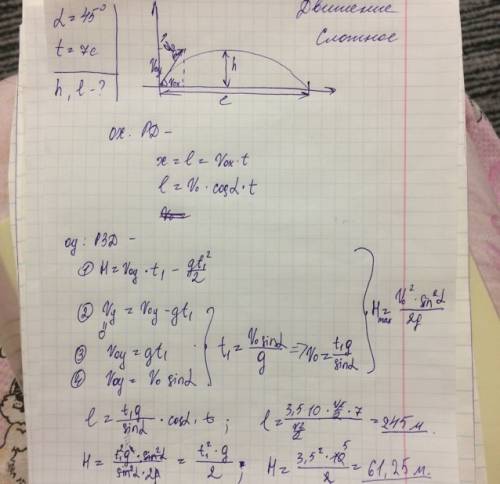 α = 45°
t = 7c
h, l - ?
Движение
Сложное
V₀y
V₀x
h
l
ox: РД -
x = l = V₀x · t
l = V₀ · cosα · t
oy: РЗД -
① H = V₀y · t₁ - gt₁²/2
② Vy = V₀y - gt₁
0
③ V₀y = gt₁
④ V₀y = V₀ sinα
t₁ = V₀ sinα/g => V₀ = t₁g/sinα
Hmax = V₀² · sin²α/2g
l = t₁g/sinα · cosα · t ; l = 3,5 · 10 · √2/2 · 7 / √2/2 = 245 м.
H = t₁²g² · sin²α/sin²α · 2g = t₁² · g/2 ; H = 3,5² · 10 5/2 = 61,25 м.